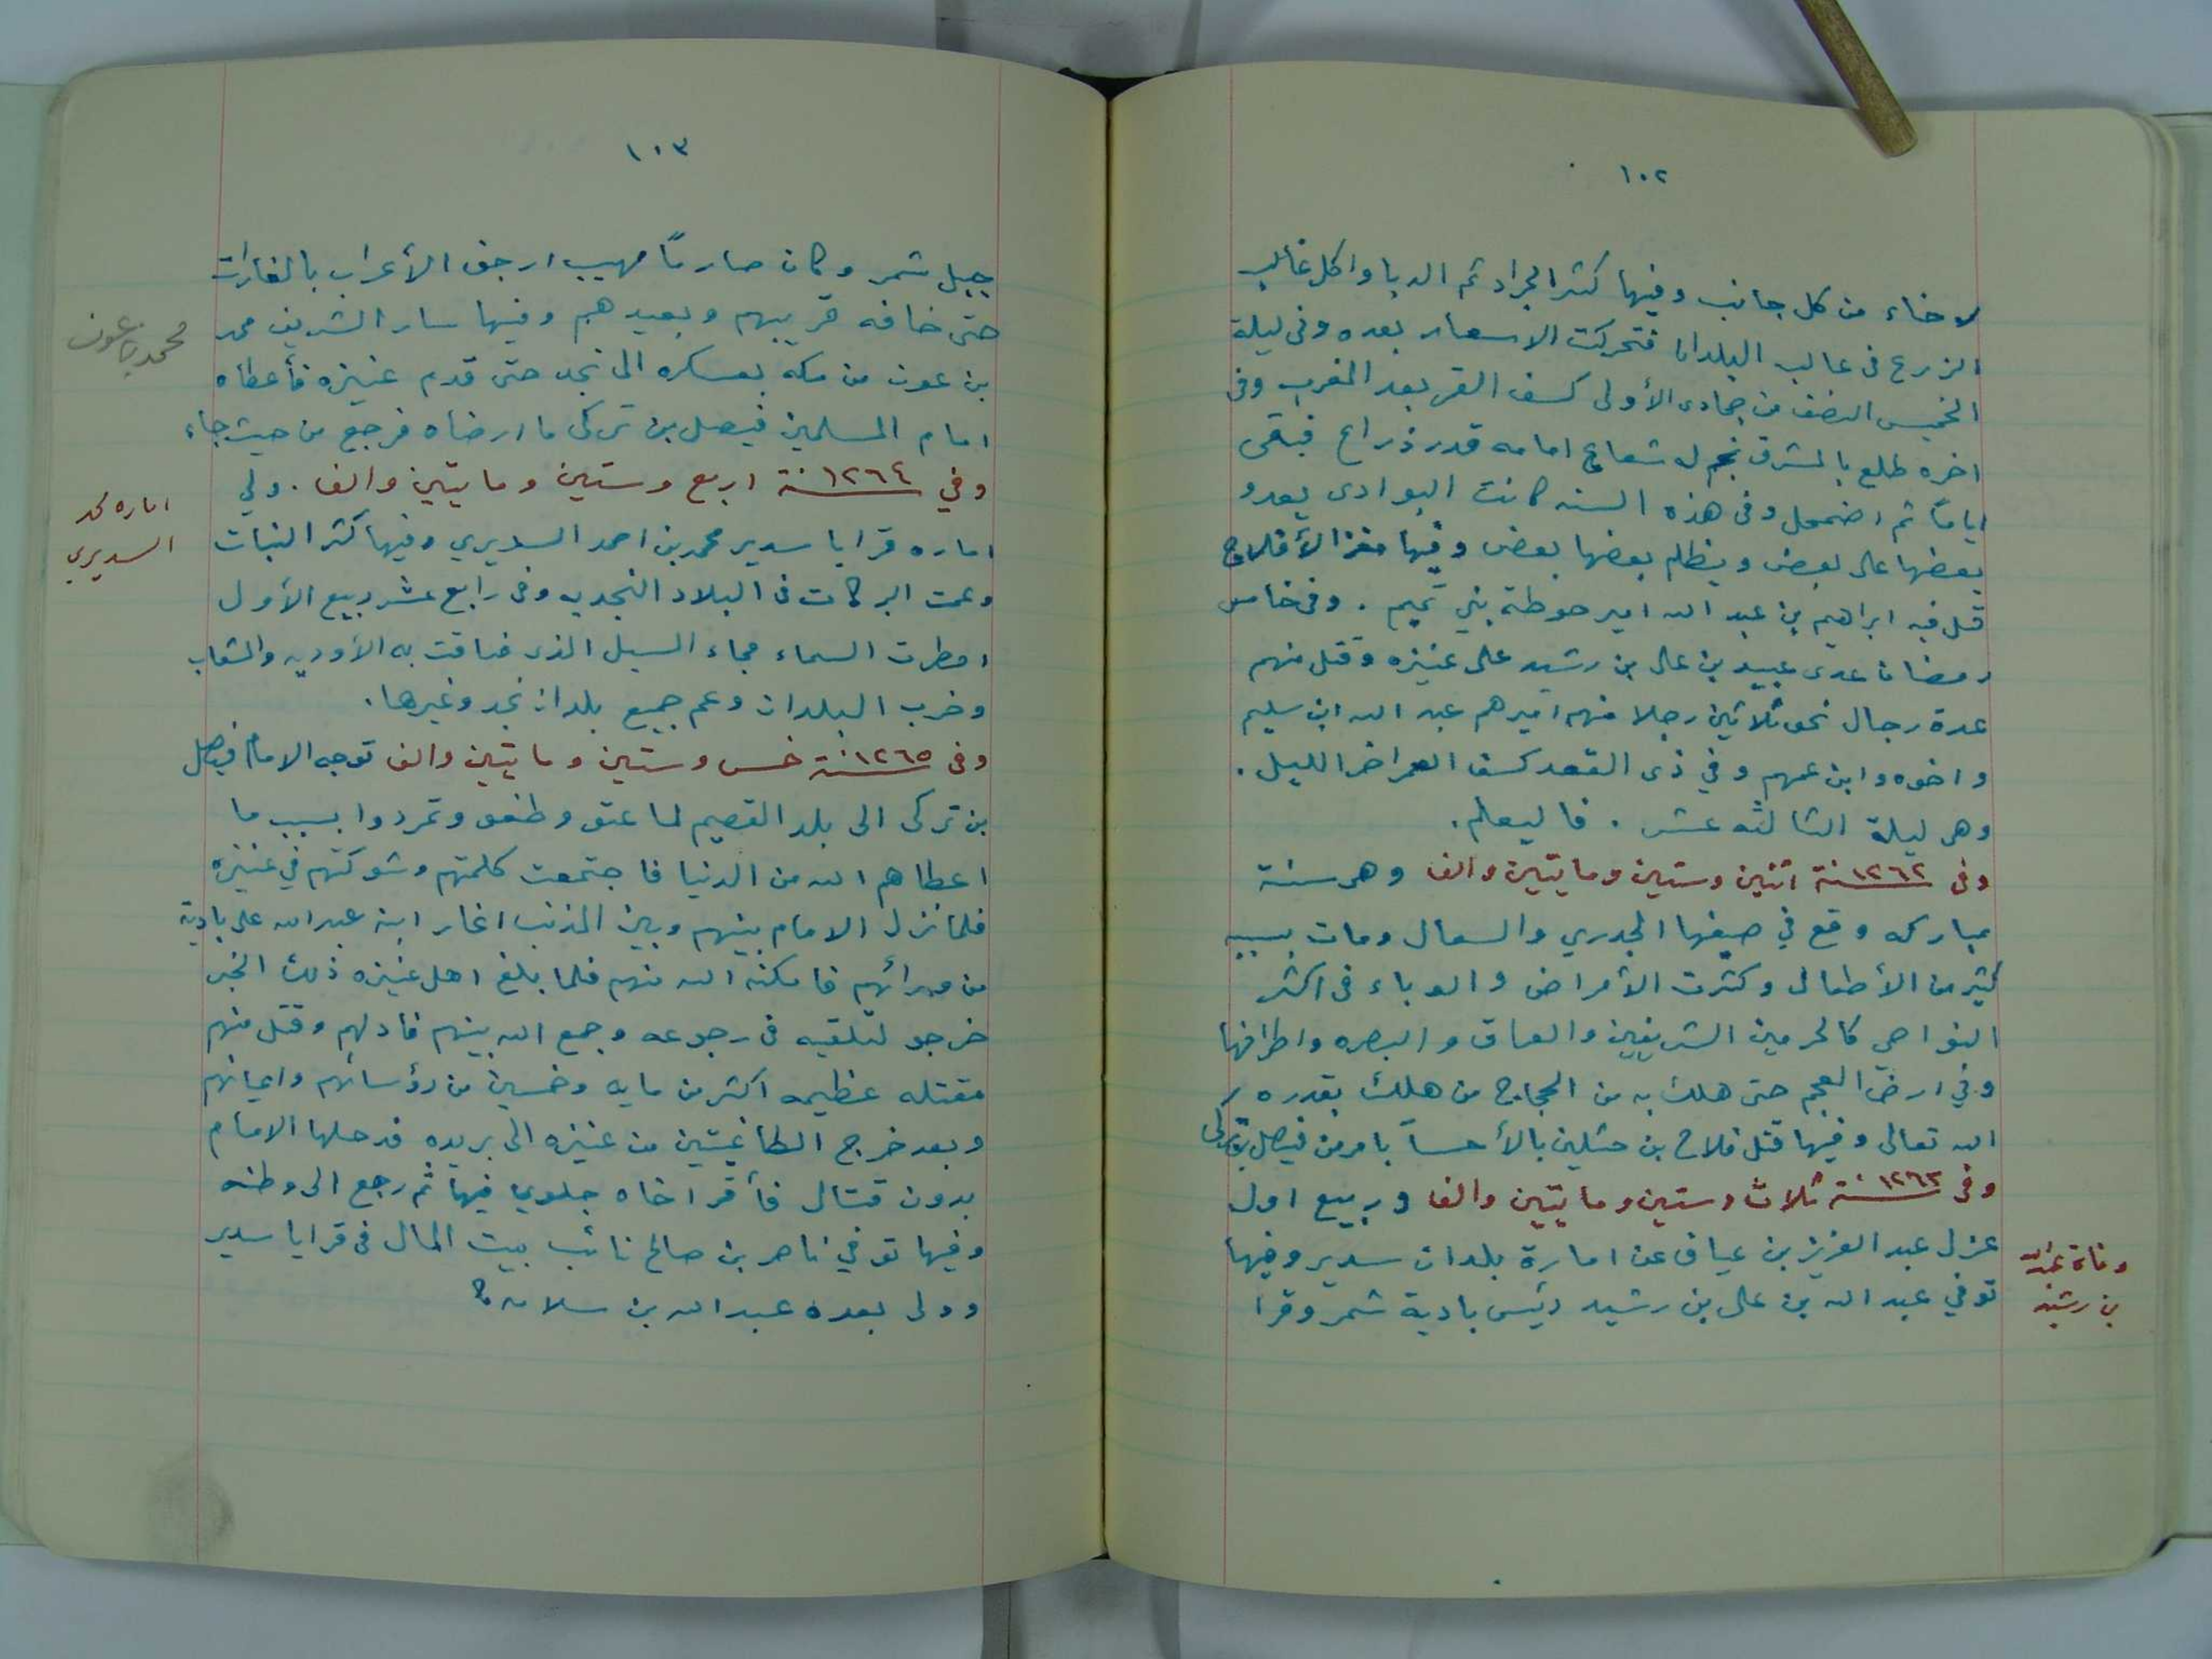 ١٠٢
لاخاء من كل جانب وفيها كثر الجراد ثم الدبا واكل غالب
الزرع في غالب البلدان فتحركت الاسعار بعده وفي ليلة
الخميس النصف من جمادى الأولى كسف القمر بعد المغرب وفي
اخره طلع بالمشرق نجم له شعاع امامه قدر ذراع فبقى
اياماً ثم اضمحل وفي هذه السنه كانت البوادى يعدو
بعضها على بعض ويظلم بعضها بعض وفيها مغزا الأفلاج
قتل فيه ابراهيم بن عبد الله امير حوطة بني تميم . وفي خامس
رمضان عدى عبيد بن على بن رشيد على عنيزه وقتل منهم
عدة رجال نحو ثلاثين رجلا منهم اميرهم عبد الله ابن سليم
واخوه وابن عمهم وفي ذى القعد كسف القمر اخر الليل .
وهى ليلة الثالثه عشر . فاليعلم .
وفى ١٢٦٢سنة اثنين وستين ومايتين والف وهى سنة
مباركه وقع في صيفها الجدري والسعال ومات بسببه
كثير من الأطفال وكثرت الأمراض والوباء فى اكثر
النواحي كالحرمين الشريفين والعراق والبصره واطرافها
وفي ارض العجم حتى هلك به من الحجاج من هلك بقدره
الله تعالى وفيها قتل فلاح بن حثلين بالأحسآ بامر من فيصل بن تركى
وفى ١٢٦٣سنة ثلاث وستين ومايتين والف و ربيع اول
عزل عبد العزيز بن عياف عن امارة بلدان سدير وفيها
توفي عبد الله بن على بن رشيد رئيس بادية شمر وقرا
وفاة عبد الله
بن رشيد
١٠٣
جبل شمر وكان صارماً مهيب ارجف الأعراب بالغارات
حتى خافه قريبهم وبعيدهم وفيها سار الشريف محمد
بن عون من مكه بعسكره الى نجد حتى قدم عنيزه فأعطاه
امام المسلمين فيصل بن تركى ما ارضاه فرجع من حيث جاء
وفي ١٢٦٤سنة اربع وستين ومايتين والف . ولي
اماره قرايا سدير محمد بن احمد السديري وفيها كثر النبات
وعمت البركات فى البلاد النجديه وفى رابع عشر ربيع الأول
امطرت السماء فجاء السيل الذى ضاقت به الأوديه والشعاب
وخرب البلدان وعم جميع بلدان نجد وغيرها .
وفى ١٢٦٥سنة خمس وستين ومايتين والف توجه الامام فيصل
بن تركى الى بلد القصيم لما عتو وطغو وتمردوا بسبب ما
اعطاهم الله من الدنيا فاجتمعت كلمتهم وشوكتهم في عنيزه
فلما نزل الامام بينهم وبين المذنب اغار ابنه عبد الله على بادية
من ورائهم فامكنه الله منهم فلما بلغ اهل عنيزه ذلك الخبر
خرجو لتلقيه فى رجوعه وجمع الله بينهم فادلهم وقتل منهم
مقتله عظيمه اكثر من مايه وخمسين من رؤسائهم واعيانهم
وبعد خرج الطاغيتين من عنيزه الى بريده فدخلها الامام
بدون قتال فأقر اخاه جلوي فيها ثم رجع الى وطنه
وفيها توفي ناصر بن صالح نائب بيت المال فى قرايا سدير
وولى بعده عبد الله بن سلامه ؟
محمد بن عون
اماره محمد
السديري